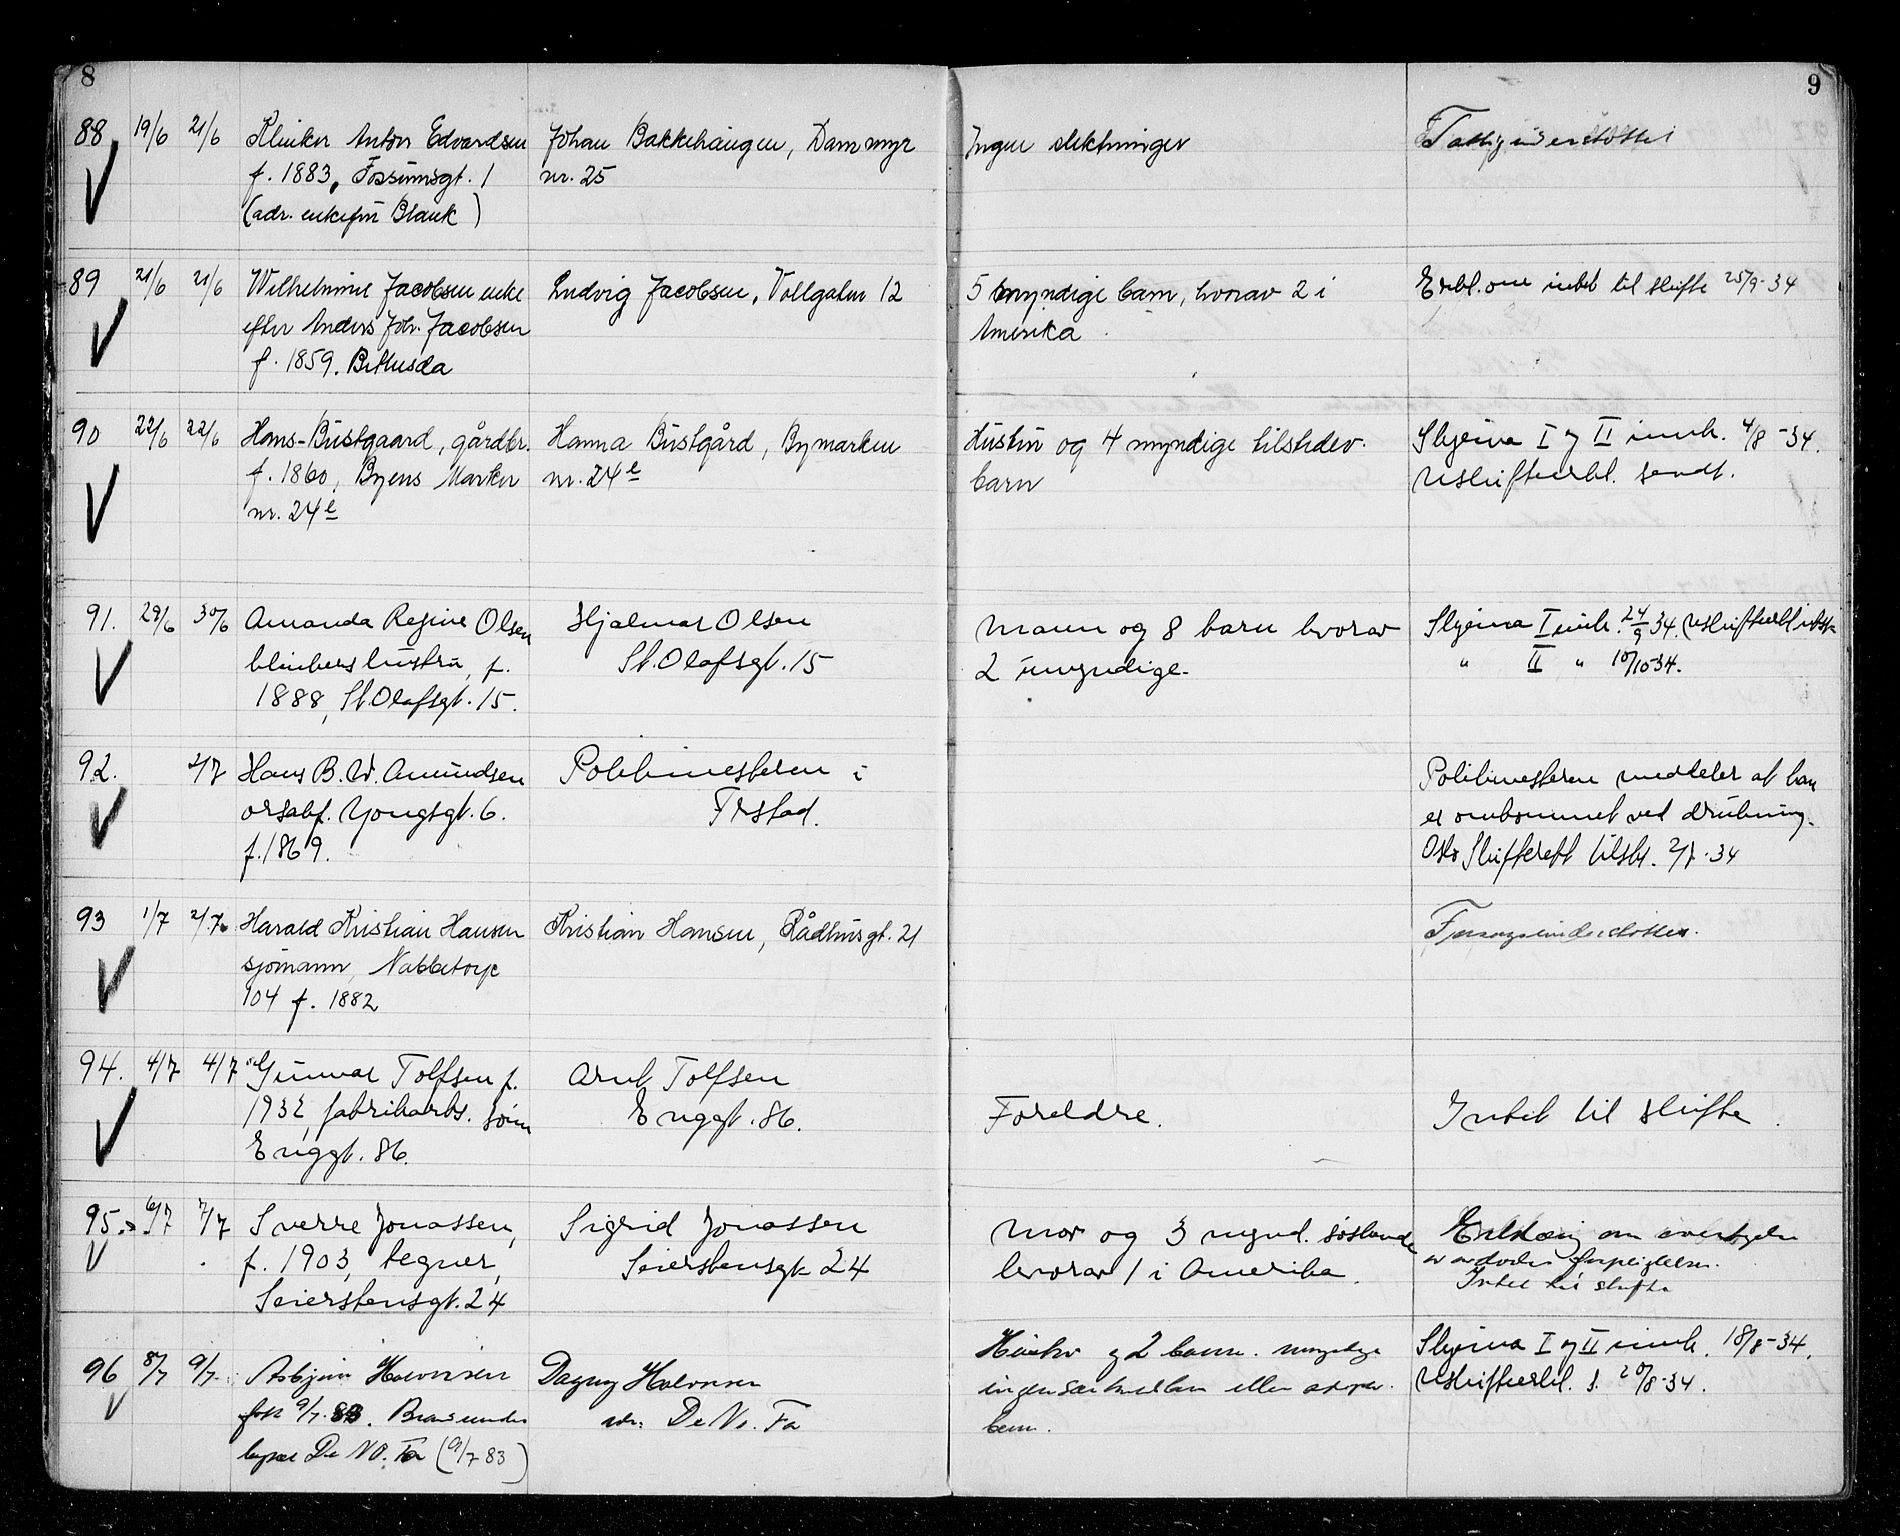 8
9
88 19/6 21/6 Klinker Anton Edvardsen
f. 1883, Fossumsgt. 1
(adr. enkefru Blank)
Johan Bakkehaugen, Dammyr
nr. 25
Ingen slektninger
Fattigunderstøttet
89 21/6 21/6 Wilhelmine Jacobsen enke
efter Anders Joh. Jacobsen
f. 1859. Bethesda
Ludvig Jacobsen, Vollgaten 12
5 myndige barn, hvorav 2 i
Amerika
Erkl. om intet til skifte 25/9-34
90 22/6 22/6 Hans Bustgaard, gårdbr.
f. 1860, Byens Marker
nr. 24 e
Hanna Bustgård, Bymarken
nr. 24 e
Hustru og 4 myndige tilstedev.
barn
Skjema I og II innk. 4/8-34.
Uskifteerkl. sendt.
91. 29/6 30/6 Amanda Regine Olsen
blinkers hustru, f.
1888, St. Olafsgt. 15.
Hjalmar Olsen
St. Olafsgt. 15
Mann og 8 barn hvorav
2 umyndige.
Skjema I innk. 24/9 34. Uskifteerkl.
" II " 10/10 34.
92. 2/7 Hans B. W. Amundsen
Yongsgt. 6.
f. 1869.
Politimesteren i
Frstad.
Politimesteren meddeler at han
er omkommet ved drukning.
Oslo Skifterett tilskr. 2/7-34
93 1/7 2/7. Harald Kristian Hansen
sjømann, Nabbetorp
104 f. 1882
Kristian Hansen, Rådhusgt. 21
Forsorgsunderstøttet.
94. 4/7 4/7 Gunnar Tolfsen f.
1932, fabrikarb. sønn
Enggt. 86.
Arnt Tolfsen
Enggt. 86.
Foreldre.
Intet til skifte.
95. 6/7 7/7 Sverre Jonassen,
f. 1903, tegner,
Seierstensgt. 24
Sigrid Jonassen
Seierstensgt. 24
Mor og 3 mynd. søskende
hvorav 1 i Amerika.
Erklæring om overtagelse
av avdødes forpligtelser.
Intet til skifte
96 8/7 9/7. Asbjørn Halvorsen
født 9/7. 83.
De No. Fa (9/7 83)
Dagny Halvorsen
adr: De No. Fa
Hustru og 2 barn.
ingen særkullbarn eller
barn.
Skjema I og II innk. 18/8-34.
Uskifteerkl. s. 20/8-34.